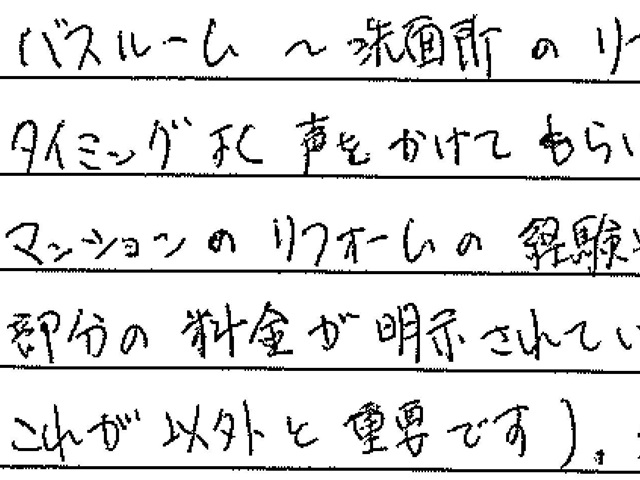 バスルーム～洗面所のリ
タイミング良く声をかけてもらい
マンションのリフォームの経験
部分の料金が明示されてい
これが以外と重要です)。